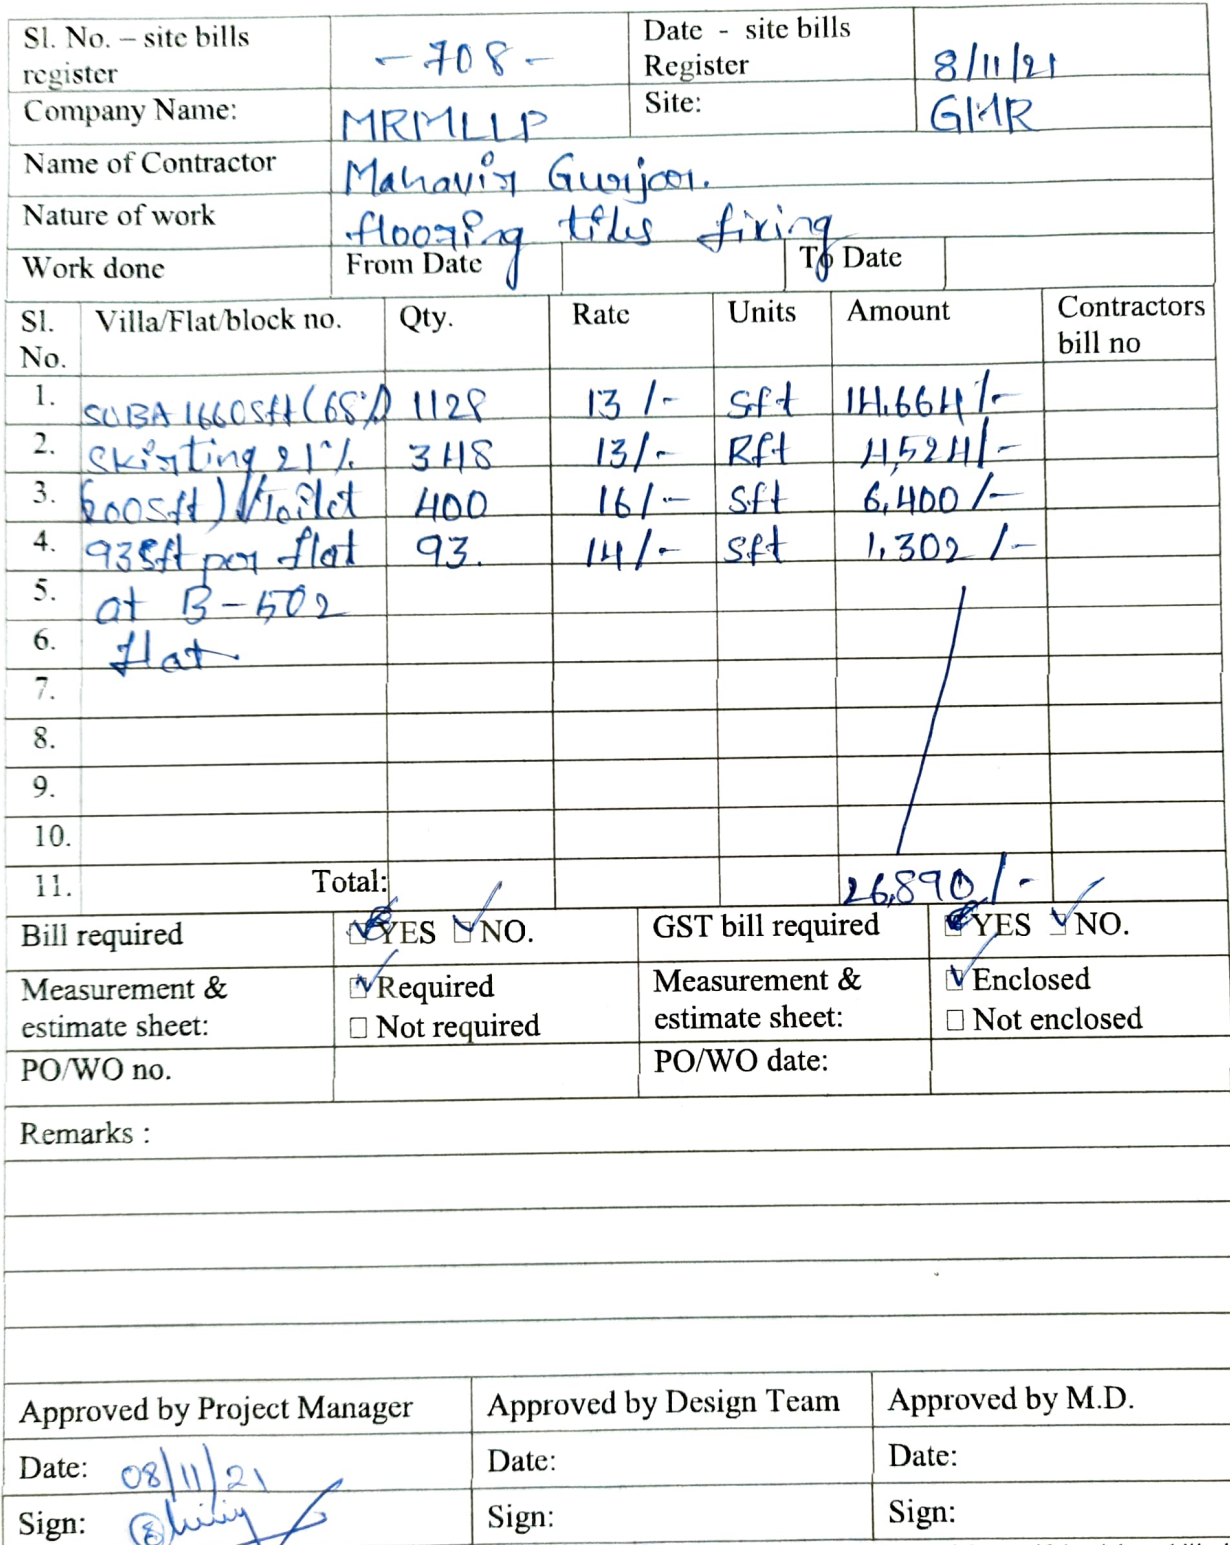 Sl. No. – site bills register -708- Date - site bills Register 8/11/21
Company Name: MRMLLP Site: GMR
Name of Contractor Mahavir Gurijar.
Nature of work flooring tiles fixing
Work done From Date To Date
Sl. No. Villa/Flat/block no. Qty. Rate Units Amount Contractors bill no
1. SUBA 1660Sft (68%) 1128 13/- Sft 14,664/-
2. Skirting 21% 348 13/- Rft 4,524/-
3. Toilet 400 16/- Sft 6,400/-
4. 93Sft per flat 93. 14/- Sft 1,302/-
5. at B-502
6. flat
7.
8.
9.
10.
11. Total: 26,890/-
Bill required YES NO. GST bill required YES NO.
Measurement & estimate sheet: Required Measurement & estimate sheet: Enclosed
Not required Not enclosed
PO/WO no. PO/WO date:
Remarks :
Approved by Project Manager Approved by Design Team Approved by M.D.
Date: 08/11/21 Date: Date:
Sign: Sign: Sign: